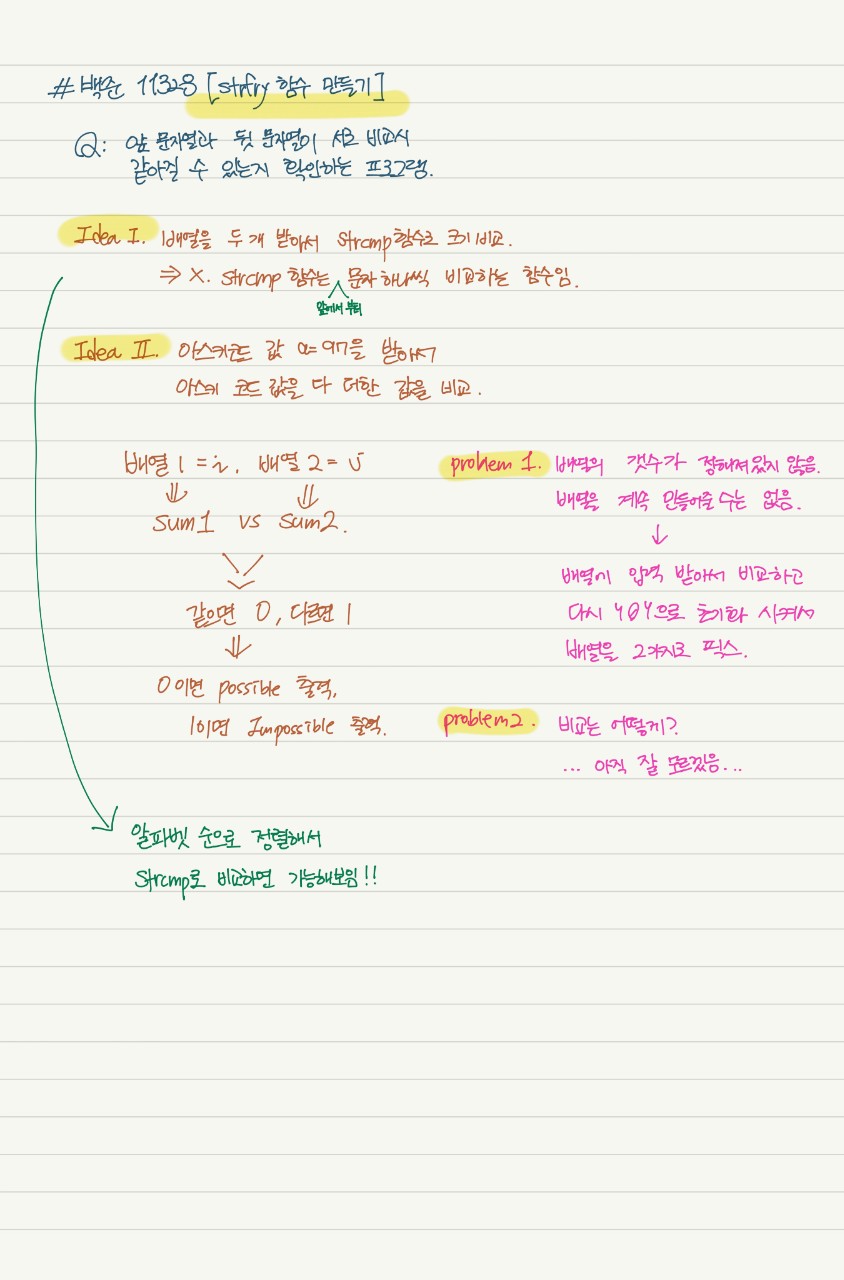 # 백준 11328 [strfry 함수 만들기]
Q: 앞 문자열과 뒷 문자열이 서로 비교시
같아질 수 있는지 확인하는 프로그램.
Idea I. 배열을 두 개 받아서 strcmp 함수로 크기 비교.
⇒ X. strcmp 함수는 문자 하나씩 비교하는 함수임.
앞에서 부터
Idea II. 아스키코드 값 a=97을 받아서
아스키 코드 값을 다 더한 값을 비교.
배열 1 = i, 배열 2 = j
⇓ ⇓
sum1 vs sum2.
같으면 0, 다르면 1
⇓
0이면 possible 출력,
1이면 Impossible 출력.
problem 1. 배열의 갯수가 정해져있지 않음.
배열을 계속 만들어줄 수는 없음.
↓
배열에 입력 받아서 비교하고
다시 '\0'으로 초기화 시켜서
배열을 2가지로 픽스.
problem2. 비교는 어떻게?
... 아직 잘 모르겠음...
알파벳 순으로 정렬해서
Strcmp로 비교하면 가능해보임!!